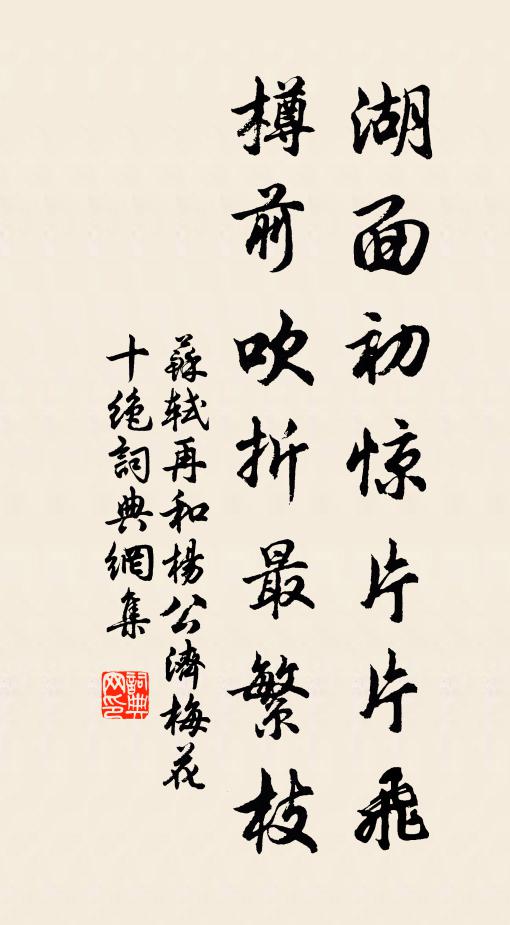 湖面初惊片片飛
樽前吹折最繁枝
蘇軾再和楊公濟梅花
十絶詞典網集
詞典网印